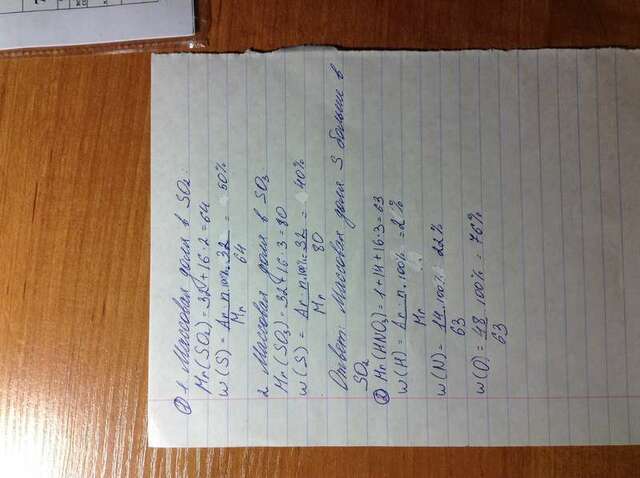 ① 1. Массовая доля в SO₂:
Mr(SO₂) = 32 + 16 · 2 = 64
w(S) = Ar · n · 100% = 32 = 50%
Mr 64
2. Массовая доля в SO₃.
Mr(SO₃) = 32 + 16 · 3 = 80
w(S) = Ar · n · 100% = 32 = 40%
Mr 80
Ответ: Массовая доля S больше в
SO₂
② Mr(HNO₃) = 1 + 14 + 16 · 3 = 63
w(H) = Ar · n · 100% = 2%
Mr
w(N) = 14 · 100% 22%
63
w(O) = 48 100% = 76%
63